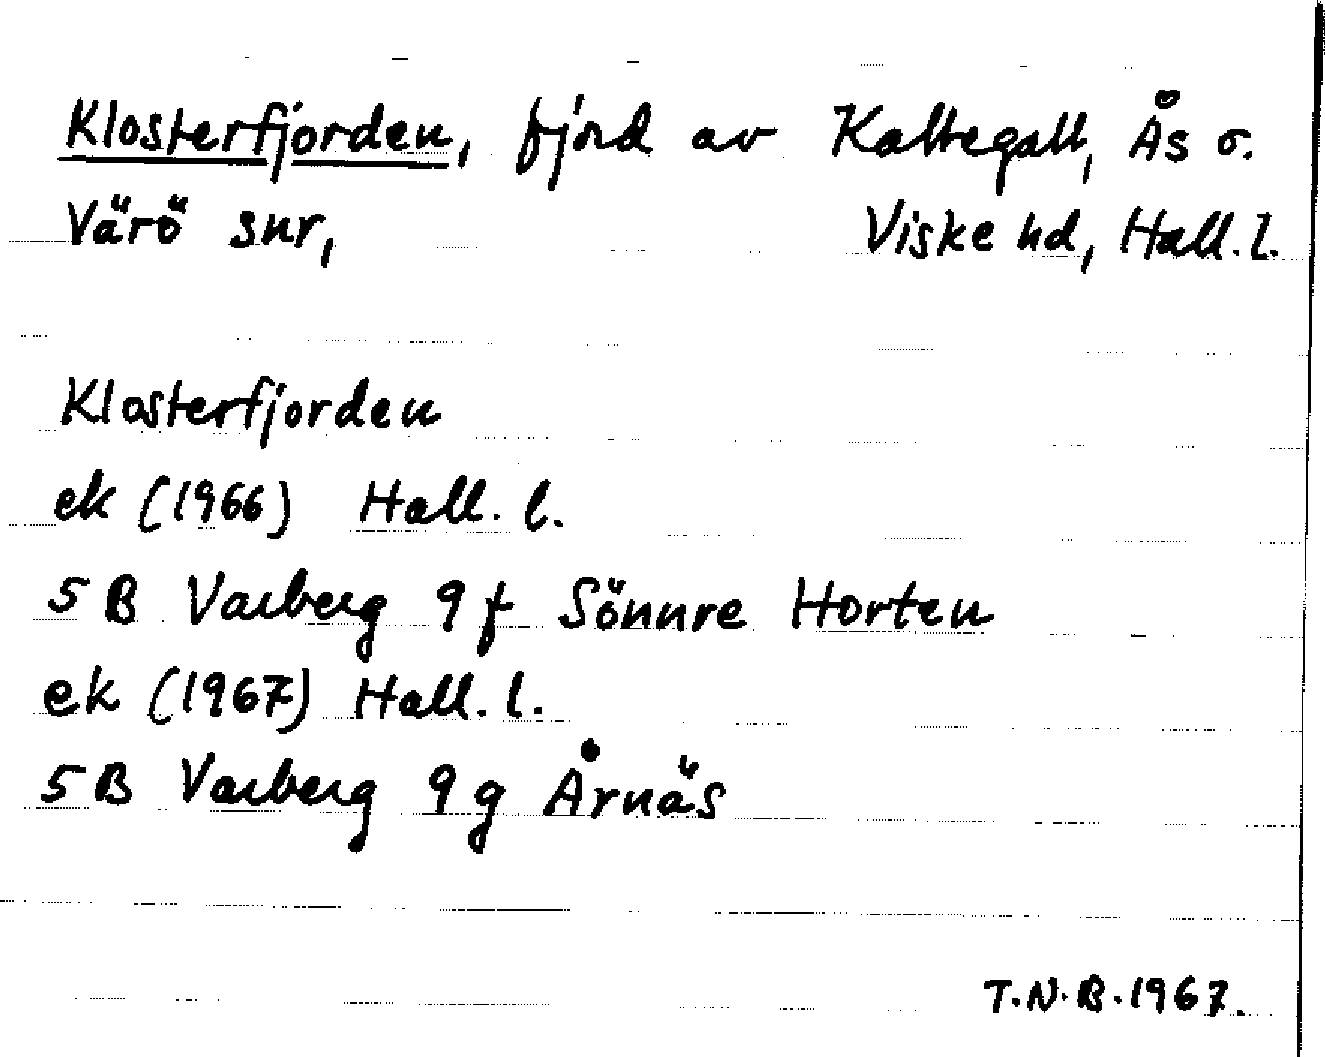 Klosterfjorden, fjord av Kattegatt, Ås o.
Värö snr, Viske hd, Hall. l.
Klosterfjorden
ek (1966) Hall. l.
5 B Varberg 9 f Sönnre Horten
ek (1967) Hall. l.
5 B Varberg 9 g Årnäs
T.N.B. 1967.